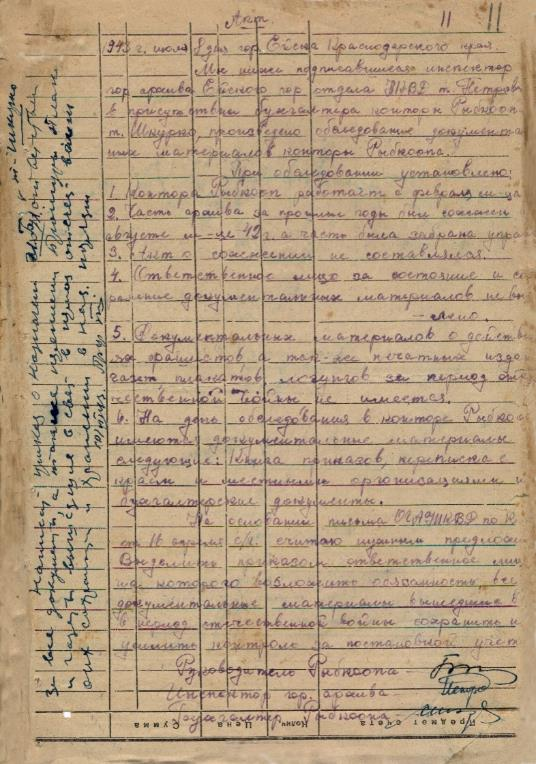 Акт
11 11
1943 г. июля 8 дня гор. Ейска Краснодарского края.
Мы ниже подписавшиеся инспектор
гор архива Ейского гор отдела НКВД т. Петрова
в присутствии бухгалтера конторы Рыбкооп
т. Шкурко, произведено обследование документа
ных материалов конторы Рыбкоопа.
При обследовании установлено:
1. Контора Рыбкооп работает с февраля м-ца
2. Часть архива за прошлые годы был сожжен
августе м-це 42 г. а часть была забрана упра
3. Акт о сожжении не составлялся.
4. Ответственное лицо за состояние и со
ранение документальных материалов не бы
лено.
5. Документальных материалов о действ
ях фашистов а так-же печатных изда
газет плакатов, лозунгов за период оте
чественной войны не имеется.
6. На день обследования в конторе Рыбкоо
имеются документальные материалы
следующие: Книга приказов, переписка с
краем и местными организациями и
бухгалтерские документы.
На основании письма ОГАУНКВД по К
от 16 апреля с/г. считаю нужным предложи
Выделить приказом ответственное ли
на которого возложить обязанность все
документальные материалы вышедшие в
в период отечественной войны сохранить и
усилить контроль за постановкой учет
Руководитель Рыбкоопа
Инспектор гор. архива
Бухгалтер Рыбкоопа
Предмет счета Колич. Цена Сумма
Написать приказ о назначении
за все документы а также
и газеты вышедшие в свет в период отечеств. войны
их хранить